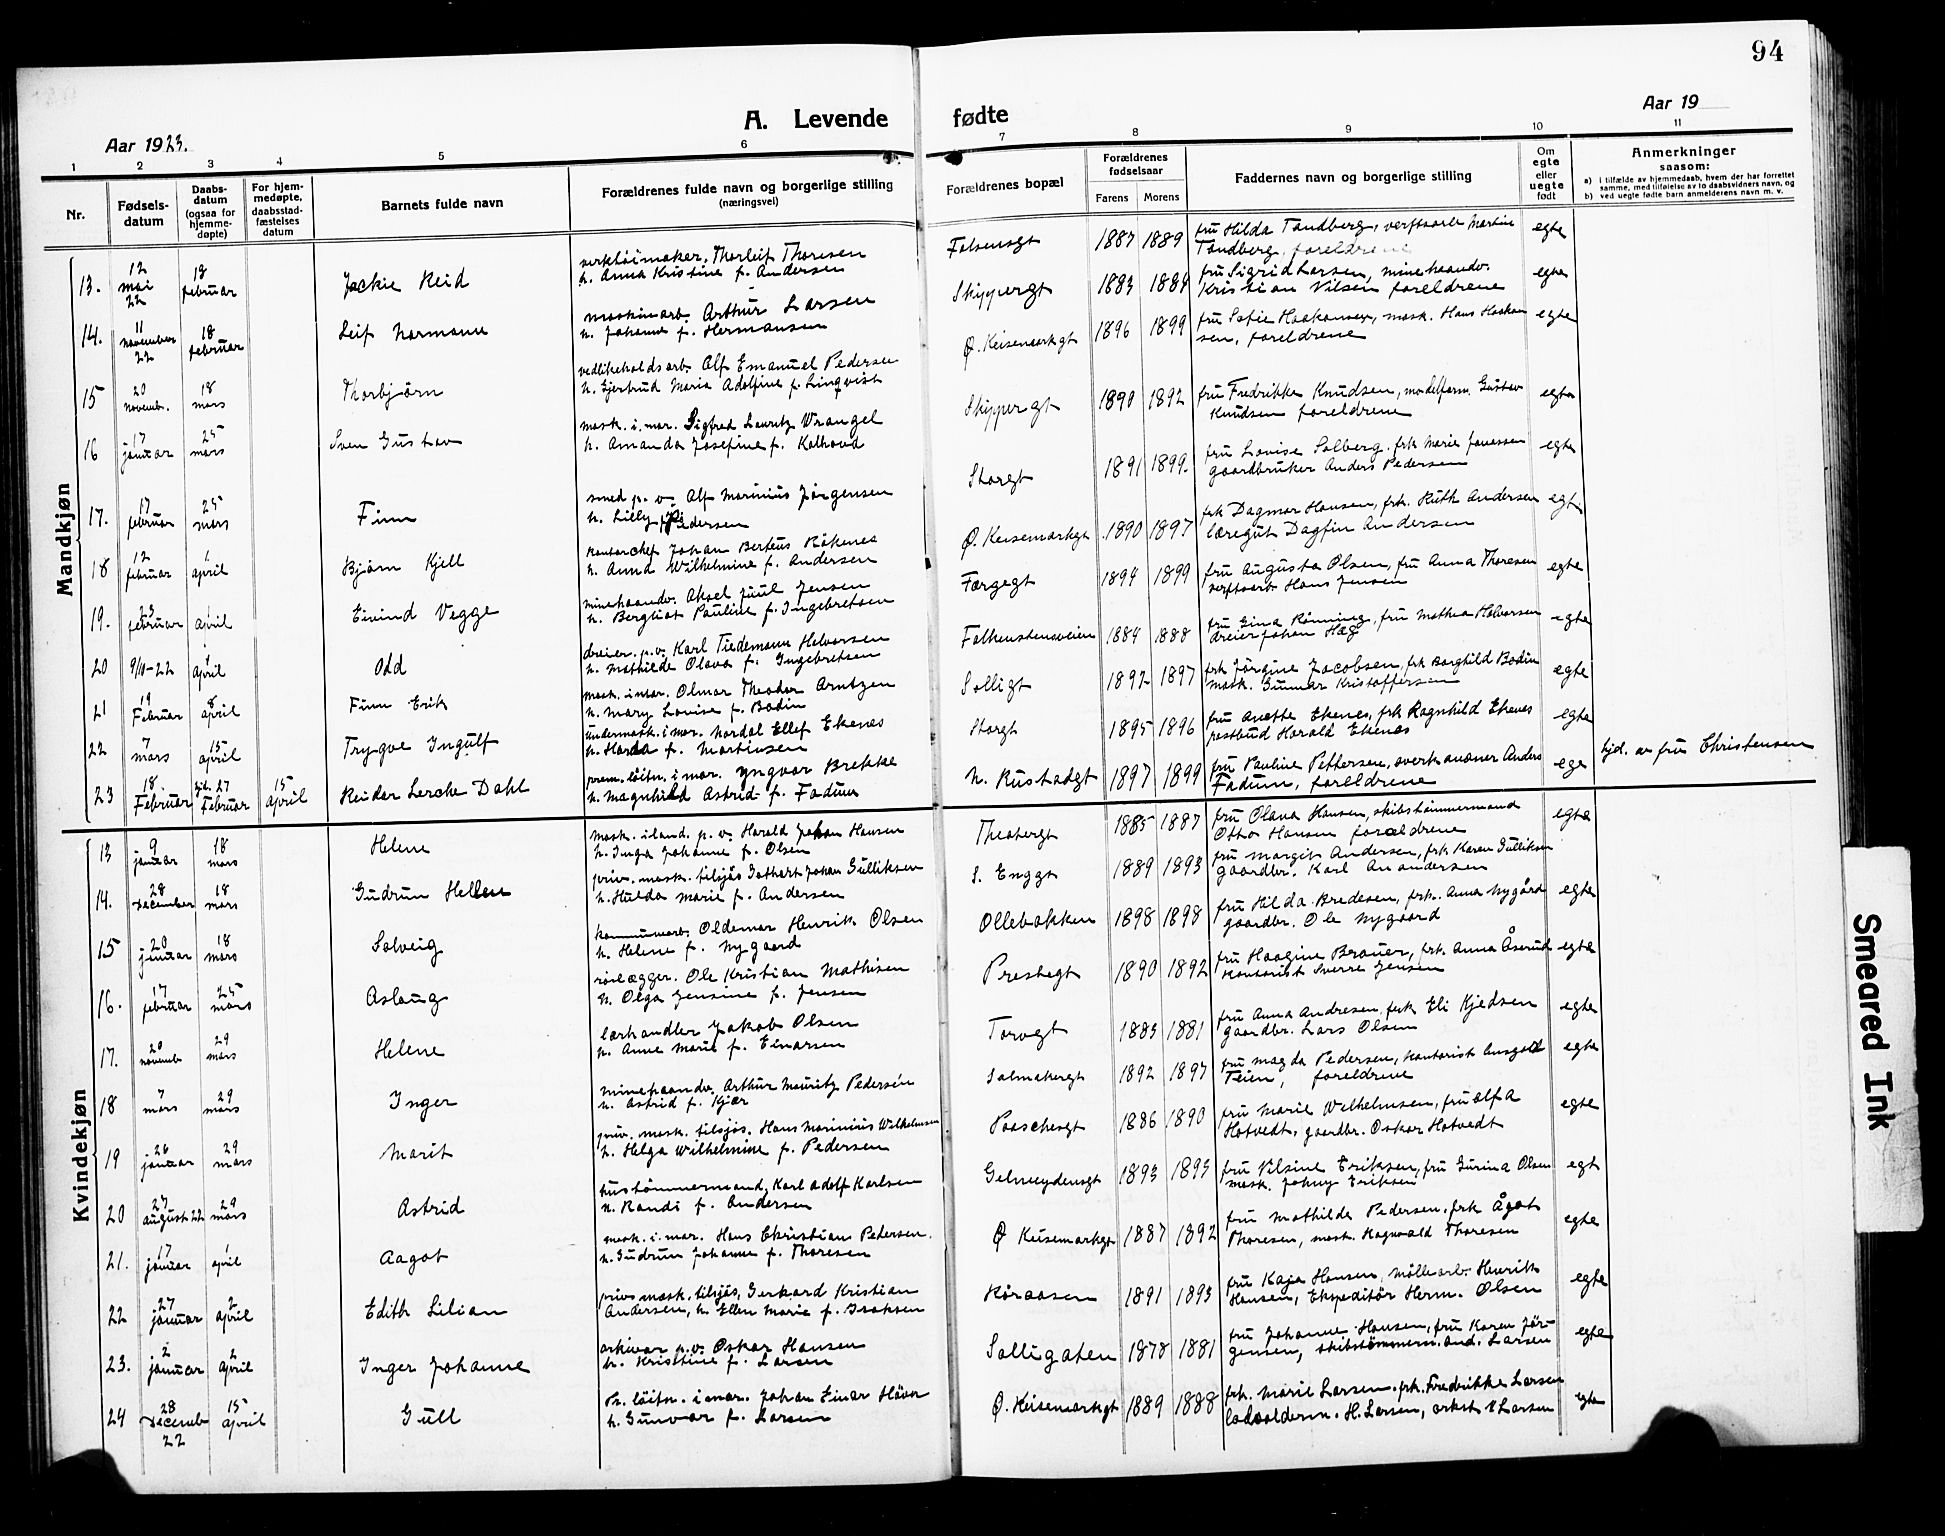 94
Aar 1923.
A. Levende fødte
Aar 19
1 2 3 4 5 6 7 8 9 10 11
Nr.
Fødsels-
datum
Daabs-
datum
(ogsaa for
hjemme-
døpte)
For hjem-
medøpte,
daabsstad-
fæstelses
datum
Barnets fulde navn
Forældrenes fulde navn og borgerlige stilling
(næringsvei)
Forældrenes bopæl
Forældrenes
fødselsaar
Farens Morens
Faddernes navn og borgerlige stilling
Om
egte
eller
uegte
født
Anmerkninger
saasom:
a) i tilfælde av hjemmedaab, hvem der har forrettet
samme, med tilføielse av to daabsvidners navn, og
b) ved uegte fødte barn anmelderens navn m. v.
Mandkjøn
13. 12 mai 22 18 februar Jackie Reid
verktøimaker. Thorleif Thoresen
h. Anna Kristine f. Andersen
Falsensgt 1887 1889 fru Hilda Tandberg, verftsarb Martin
Tandberg, foreldrene egte
14. 11 november 22 18 februar Leif Normann
maskinarb. Arthur Larsen
h. Johanne f. Hermansen
Skippergt 1883 1884 fru Sigrid Larsen, minehaandv.
Kristian Nilsen foreldrene egte
15 20 novemb. 18 mars Thorbjørn
vedlikeholdsarb. Alf Emanuel Pedersen
h. Gjertrud Maria Adolfine f. Linqvist
Ø. Keisemarkgt 1896 1899 fru Sofie Haakonsen, mask. Hans Haakon
sen, foreldrene egte
16 17 januar 25 mars Sven Gustav
mask. i. mar. Sigfred Lauritz Wrangel
h. Amanda Josefine f. Kolhovd
Skippergt 1890 1892 fru Fredrikke Knudsen, modelform. Gustav
Knudsen foreldrene egte
17. 17 februar 25 mars Finn
smed p. v. Alf Marinius Jørgensen
h. Lilly Pedersen
Storgt 1891 1899. fru Lovise Solberg. frk Marie Joassen
gaardbruker Anders Pedersen egte
18 12 februar 1 april Bjørn Kjell
kontorchef Johan Berteus Røkenes
h. Anna Wilhelmine f. Andersen
Ø. Keisemarkgt. 1890 1897 frk Dagmar Hansen, frk. Ruth Andersen
læregut Dagfin Andersen egt.
19. 23 februar 1 april Eivind Vegge
minehaandv. Aksel Juul Jensen
h. Bergliot Pauline f. Ingebretsen
Færgegt 1894 1899 fru Augusta Olsen, fru Anna Thoresen
verftsarb Hans Jensen egte
20 9/10-22 1 april Odd
dreier. p.v. Karl Tiedemann Halvorsen
h. Mathilde Olava f. Ingebretsen
Falkenstensveien 1884 1888 fru Gina Rønning, fru Mathea Halvorsen
dreier Johan Hæg egte
21 19 Februar 8 april Finn Erik
mask. i mar. Olmar Theodor Arntzen
h. Mary Lovise f. Bodin
Solligt 1892 1897 frk Jørgine Jacobsen, frk Borghild Bodin
mask. Gunnar Kristoffersen egte
22 7 mars 15 april Trygve Ingulf
undermask. i mar. Nordal Ellef Ekenes
h. Harda f. Martinsen
Storgt 1895 1896 fru Anette Ekenes, frk Ragnhild Ekenes
postbud Harald Ekenes egte
23 18. Februar hjd. 27 Februar 15 april Reidar Lerche Dahl
prem. løitn. i mar. Yngvar Brekke
h. Magnhild Astrid f. Fadum
N. Rustadgt 1897 1899 fru Pauline Pettersen, overkanoner Anders
Fadum, foreldrene ege hjd. av fru Christensen
Kvindekjøn
13 9 januar 18 mars Helene
mask. i land. p. v. Harald Johan Hansen
h. Inga Johanne f. Olsen
Theatergt 1885 1887 fru Olava Hansen, skibstømmermand
Otto Hansen foreldrene egte
14. 28 december 18 mars Gudrun Helene
priv. mask. tilsjøs Gothart Johan Gulliksen
h. Hulda Marie f. Andersen
S. Enggt 1889 1893 fru Margit Andersen, frk Karen Gulliksen
gaardbr. Karl Anandersen
15 20 januar 18 mars Solveig
kommunearb. Oldemar Henrik Olsen
h. Helene f. Nygaard
Ollebakken 1898 1898 fru Hilda Bredesen, frk. Anna Nygård
gaardbr. Ole Nygaard egte
16. 17 februar 25 mars Aslaug
rørlægger. Ole Kristian Mathisen
h. Olga Jensine f. Jensen
Prestegt 1890 1892 fru Haagine Brauer, frk. Anna Åserud
kontorist Sverre Jensen egte
17. 20 novemb 29 mars Helene
lærhandler Jakob Olsen
h. Anne Marie f. Einarsen
Torvgt 1883 1881 fru Anna Andresen. frk Eli Kjeldsen
gaardbr. Lars Olsen egte
18 7 mars 29 mars Inger
minehaandv. Arthur Mauritz Pedersen
h. Astrid f. Kjær
Salmakergt 1892 1897 fru Magda Pedersen, kontorist Ansgar
Teien, foreldrene egte
19 26 januar 29 mars Marit
priv. mask. tilsjøs. Hans Marinius Wilhelmsen
h. Helga Wilhelmine f. Pedersen
Paaschesgt 1886 1890 fru Marie Wilhelmsen, fru Alfa
Hotvedt, gaardbr. Oskar Hotvedt egte
20 27 august 22 29 mars Astrid
hustømmermand, Karl Adolf Karlsen
h. Randi f. Andersen
Gelmeydensgt 1893 1893 fru Nilsine Eriksen, fru Gurina Olsen
mask. Johny Eriksen egt
21. 17 januar 1 april Aagot
mask. i. mar. Hans Christian Pedersen.
h. Gudrun Johanne f. Thoresen
Ø Keisemarkgt 1887 1892 fru Mathilde Pedersen. frk Ågot
Thoresen, mask. Ragnvald Thoresen egte
22 27 januar 2 april Edith Lilian
priv mask. tilsjøs. Gerhard Kristian
Andersen, h. Ellen Marie f. Isaksen
Røraasen 1891 1893 fru Kaja Hansen, møllearb. Henrik
Hansen, Ekspeditør Herm. Olsen egte
23. 2 januar 2 april Inger Johanne
arkivar p.v. Oskar Hansen
h. Kristine f. Larsen
Solligaten 1878 1881 fru Johanne Hansen, fru Karen Jør-
gensen, skibstømmerm. And. Larsen egte
24 28 Decemb 22 15 april Gull
Pr. løitn. i mar. Johan Einar Håver
h. Gunvor f. Larsen
Ø. Keisemarkgt 1889 1888 frk. Marie Larsen. frk. Fredrikke Larsen
lodsolderm. H. Larsen, arkst Larsen egte
Smeared Ink